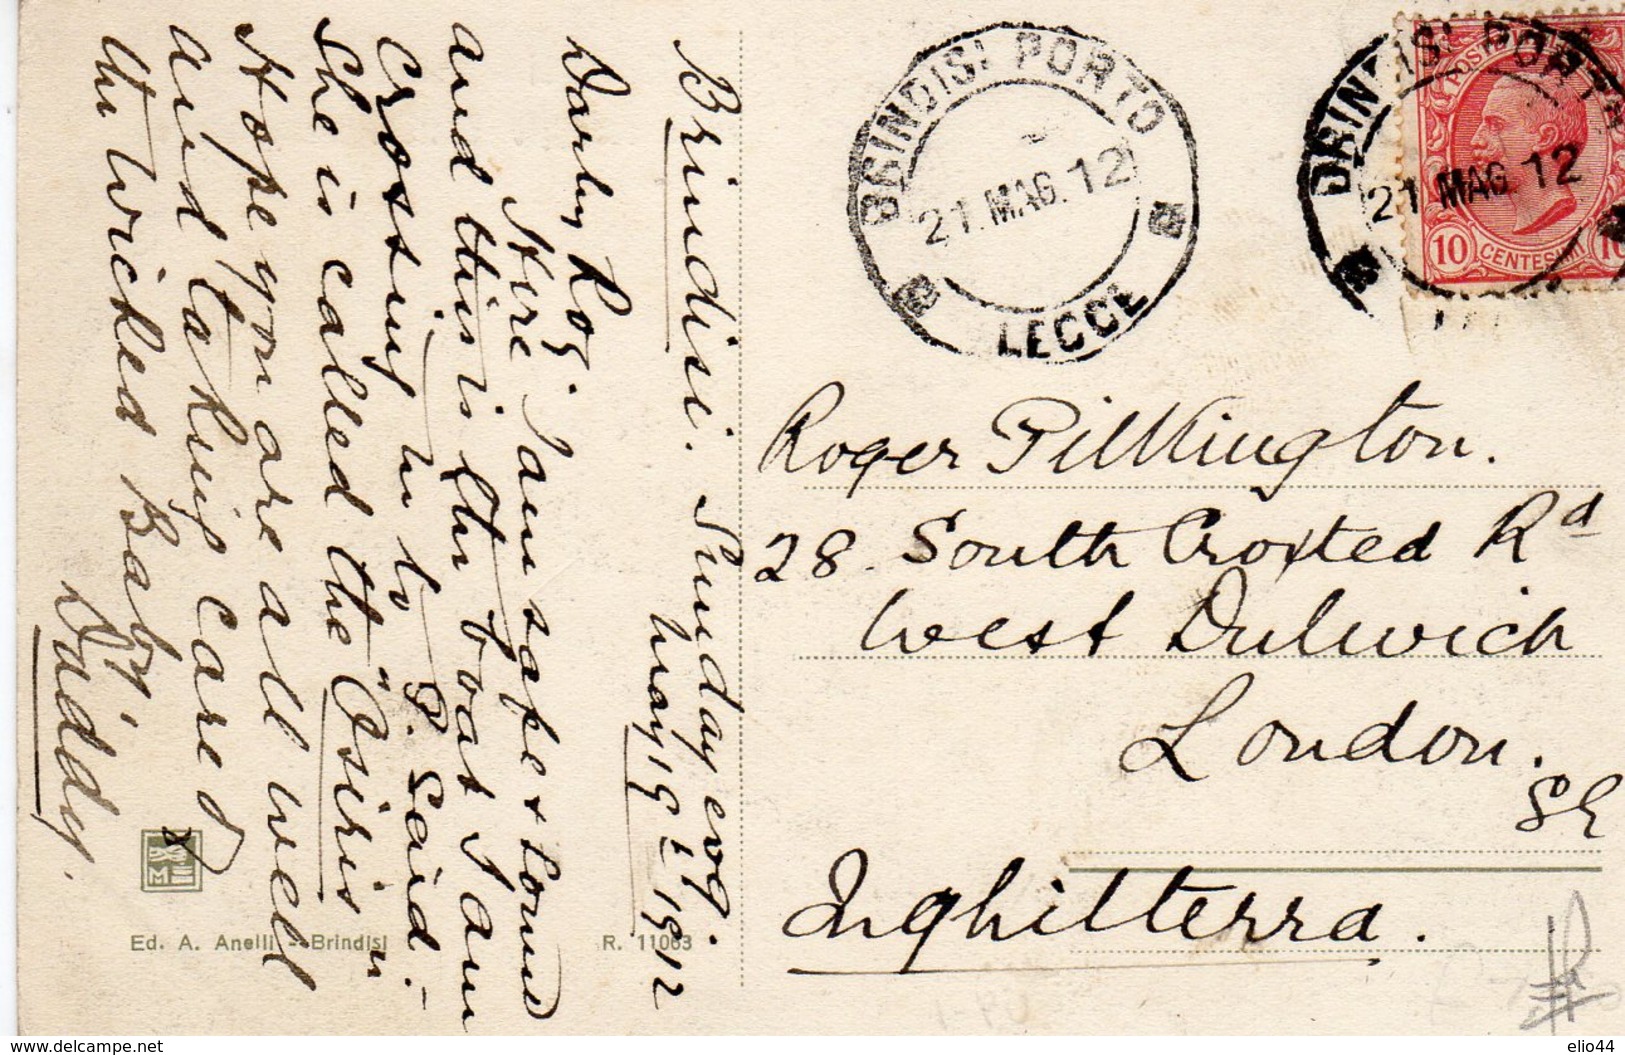 Brindisi. Sunday evg.
May 19th 1912
Darling Rog.
Here I am safe & sound
and this is the boat I am
crossing in to P. Said.
She is called the "Osiris"
Hope you are all well
and taking care of
the wicked Baby.
Daddy.
Ed. A. Anelli - Brindisi
R. 11063
BRINDISI PORTO
21. MAG. 12
LECCE
BRINDISI PORTO
21 MAG 12
POSTE
10 CENTESIMI 10
Roger Pilkington.
28. South Croxted Rd
West Dulwich
London.
SE
Inghilterra.
www.delcampe.net
elio44